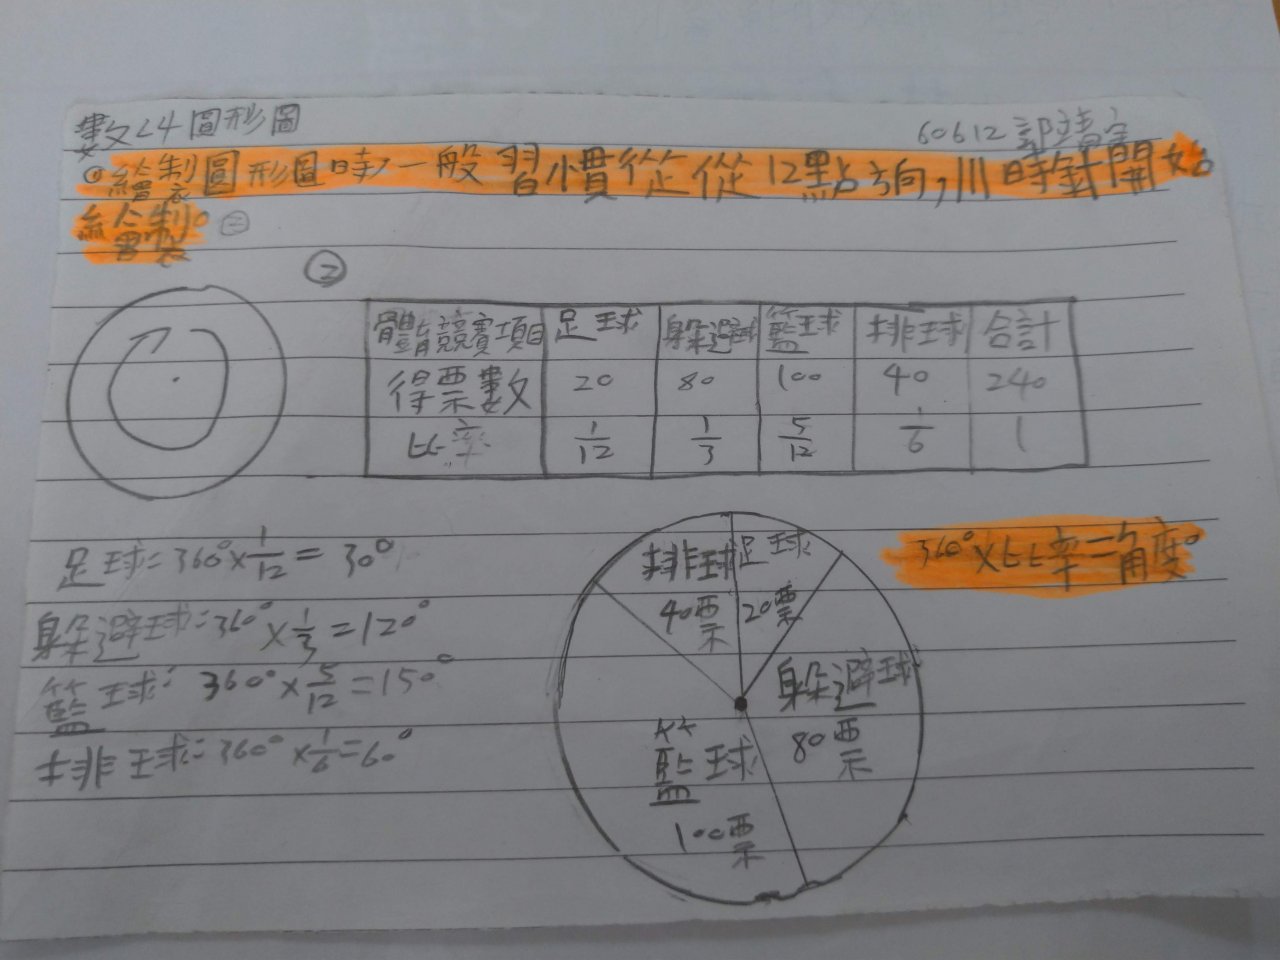 數L4圓形圖
60612
①繪製圓形圖時,一般習慣從從12點方向,川時針開始
繪製。
②
體育競賽項目 足球 躲避球 籃球 排球 合計
得票數 20 80 100 40 240
比率 1/12 1/3 5/12 1/6 1
足球:360°×1/12=30°
躲避球:360°×1/3=120°
籃球:360°×5/12=150
排球:360°×1/6=60°
360°×比率=角度。
排球
40票
足球
20票
躲避球
80票
籃球
100票